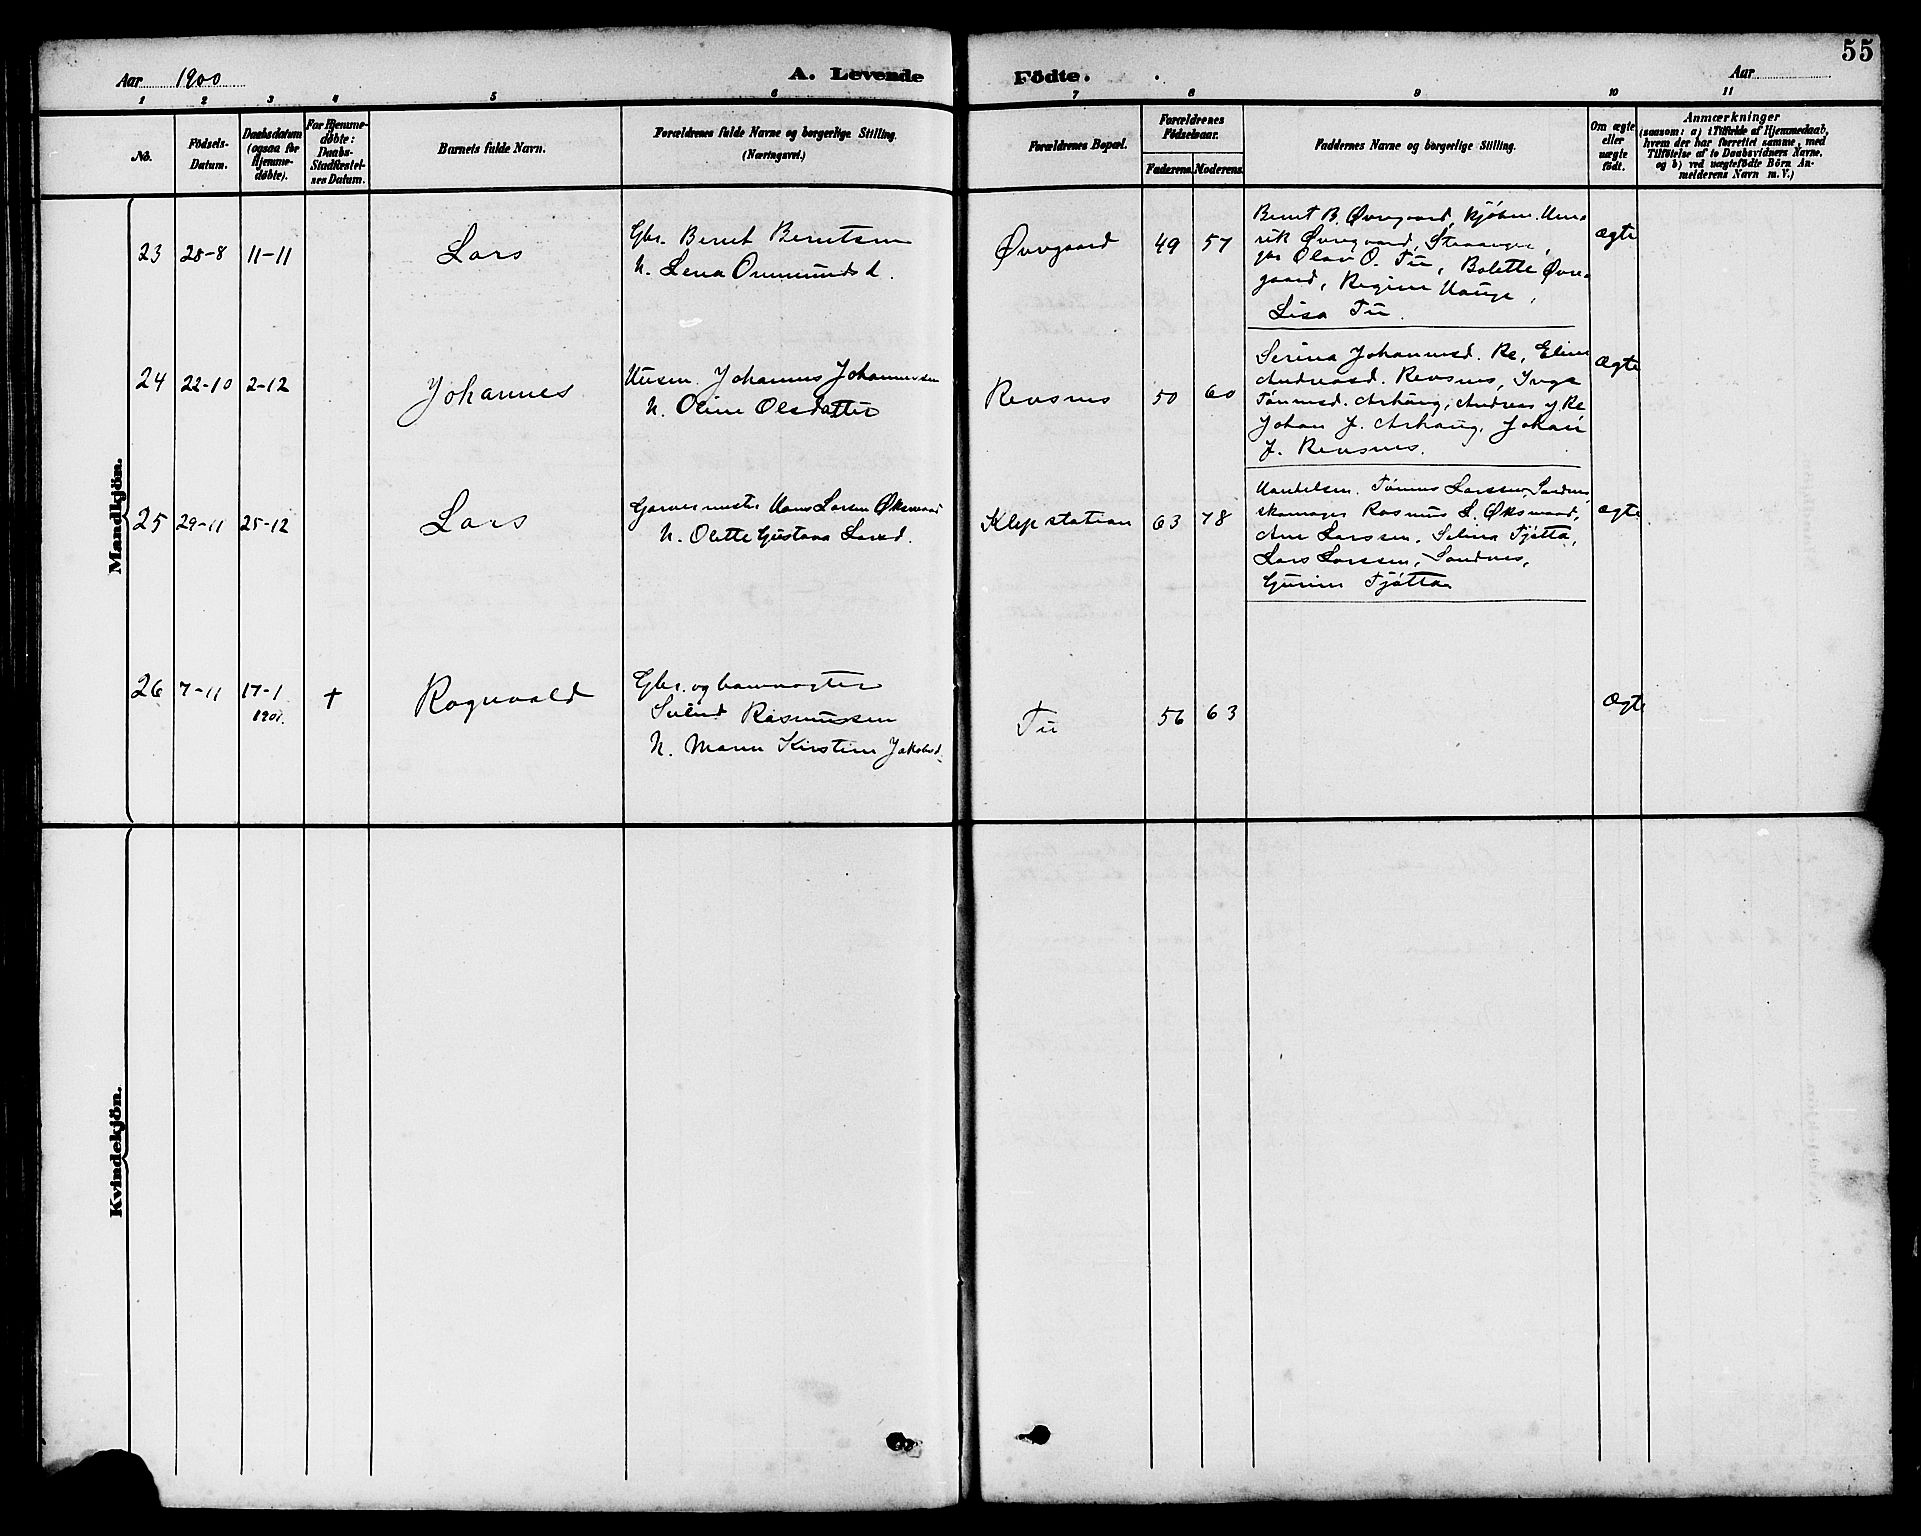 55
Aar 1900
A. Levende Födte.
Aar
1 2 3 4 5 6 7 8 9 10 11
No.
Födsels-Datum.
Daabsdatum (ogsaa for Hjemme-døbte).
For Hjemme-døbte: Daabs-Stadfæstel-ses Datum.
Barnets fulde Navn.
Forældrenes fulde Navne og borgerlige Stilling.
(Næringsvei.)
Forældrenes Bopæl.
Forældrenes Födselsaar.
Faderens. Moderens.
Faddernes Navne og borgerlige Stilling.
Om ægte eller uægte født.
Anmærkninger
(saasom: a) i Tilfælde af Hjemmedaab,
hvem der har forrettet samme, med
Tilföielse af to Daabsvidners Navne,
og b) ved uægtefødte Börn An-
melderens Navn m. V.)
Mandkjön.
23 28-8 11-11 Lars
Gbr. Bernt Berntsen
H. Lena Ommundsd.
Øvregaard 49 57
Bernt B. Øvregaard, kjøbm. Hen-
rik Øvregaard, Stavanger,
gbr Olav O. Tu, Bolette Øvre-
gaard, Regine Hauge,
Lisa Tu.
ægte
24 22-10 2-12 Johannes
Husm. Johannes Johannessen
H. Oline Olsdatter
Revsnes 50 60
Serina Johannesd. Re, Eline
Andreasd. Revsnes, Inga
Tønnesd. Arhaug, Andreas J. Re
Johan J. Arhaug, Johan
J. Revsnes.
Ægte
25 29-11 25-12 Lars
Garvermester Hans Larsen Øksnevad
H. Olette Gustava Larsd.
Klep station 63 78
Handelsm. Tønnes Larssen, Sandnes
skomager Rasmus L. Øksnevad,
Ane Larssen, Selina Tjøtta,
Lars Larssen, Sandnes,
Gurine Tjøtta
ægte
26 7-11 17-1 1901. + Ragnvald
Gbr. og banevogter
Svend Rasmussen
H. Maren Kirstine Jakobsd.
Tu 56 63
Ægte
Kvindekjön.